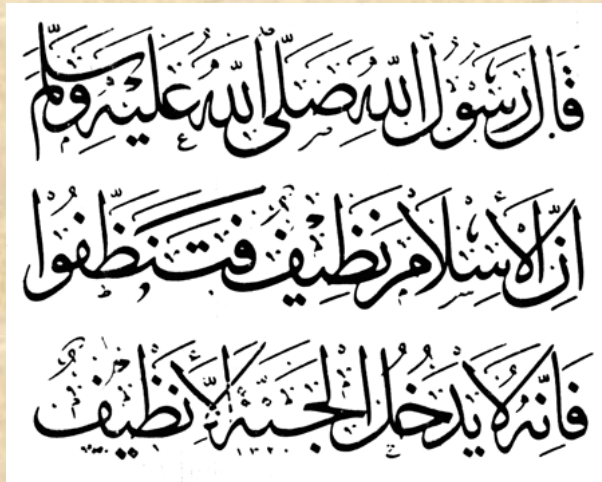 قَالَ رَسُولُ اللّٰهِ صَلَّى اللّٰهُ عَلَيْهِ وَسَلَّمَ
اِنَّ الْاِسْلَامَ نَظِيفٌ فَتَنَظَّفُوا
فَاِنَّهُ لَا يَدْخُلُ الْجَنَّةَ اِلَّا نَظِيفٌ